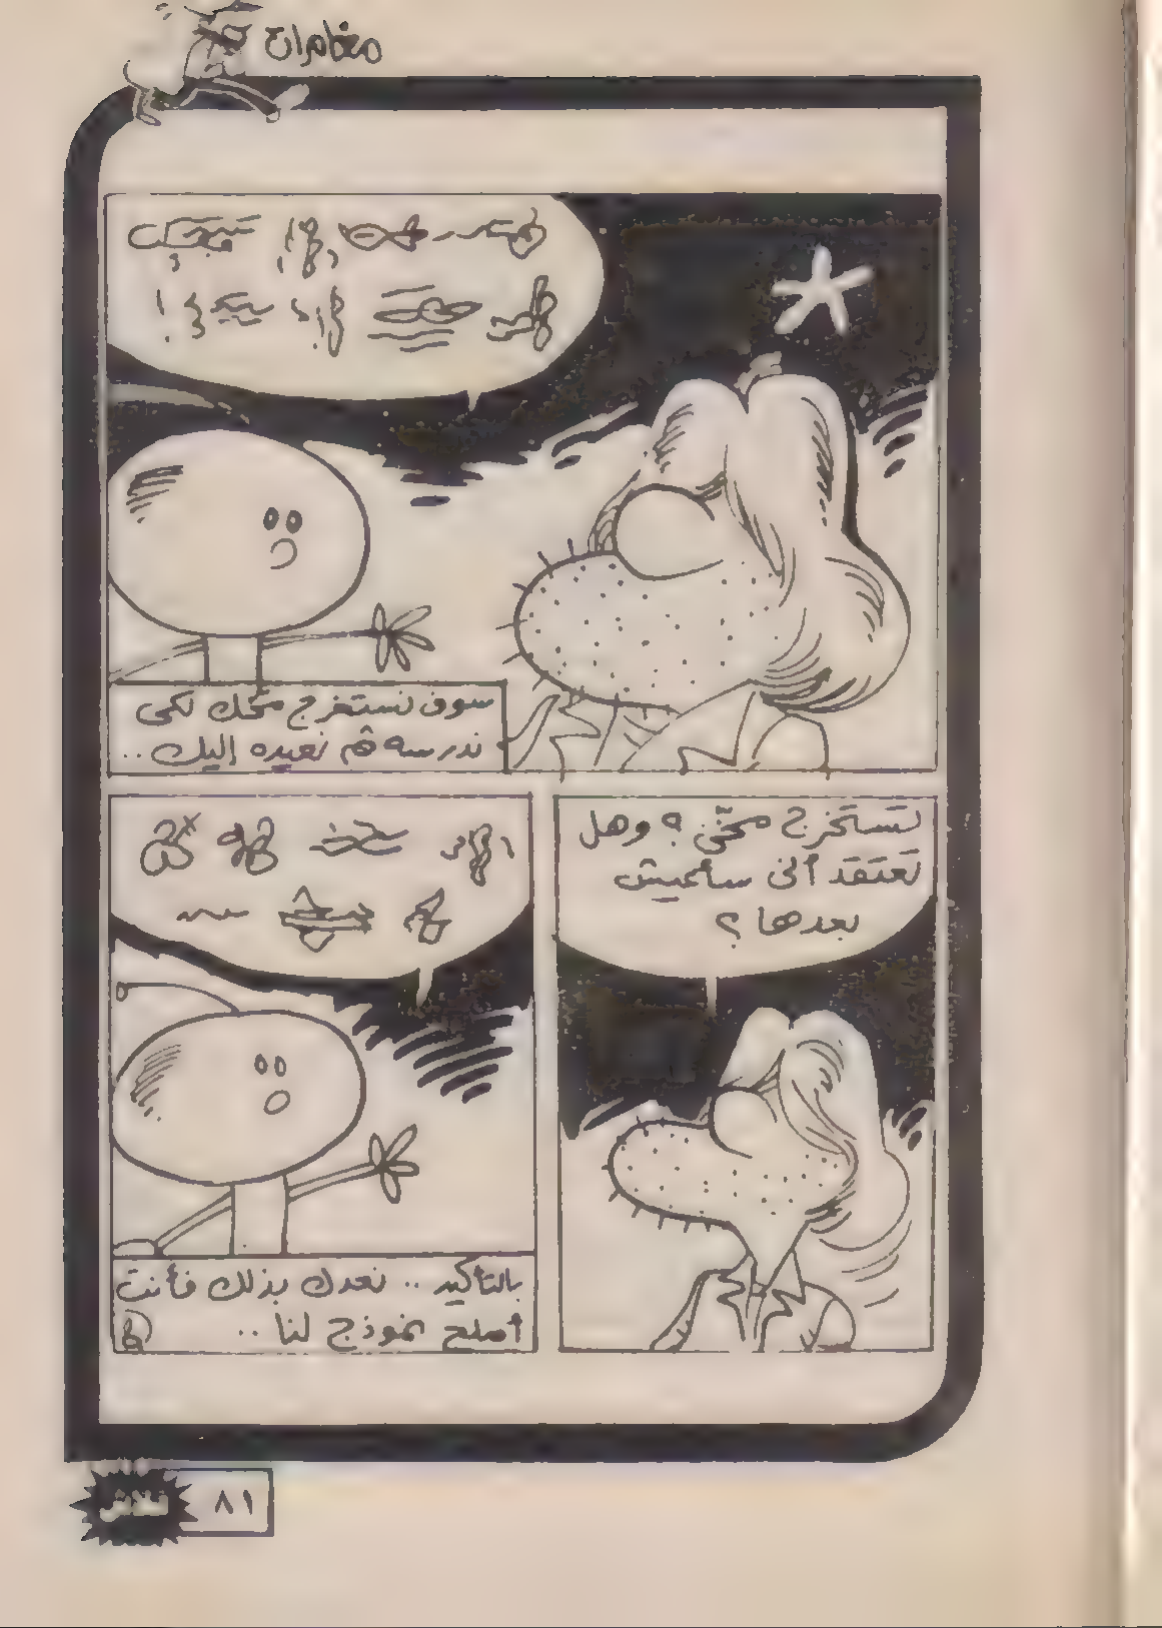 مغامرات
سوف نستخرج مخك لكى
ندرسه ثم نعيده إليك ..
تستخرج مخّى ؟ وهل
تعتقد أنى سأعيش
بعدها ؟
بالتأكيد .. نعدك بذلك فأنت
أصلح نموذج لنا ..
فلاش
٨١